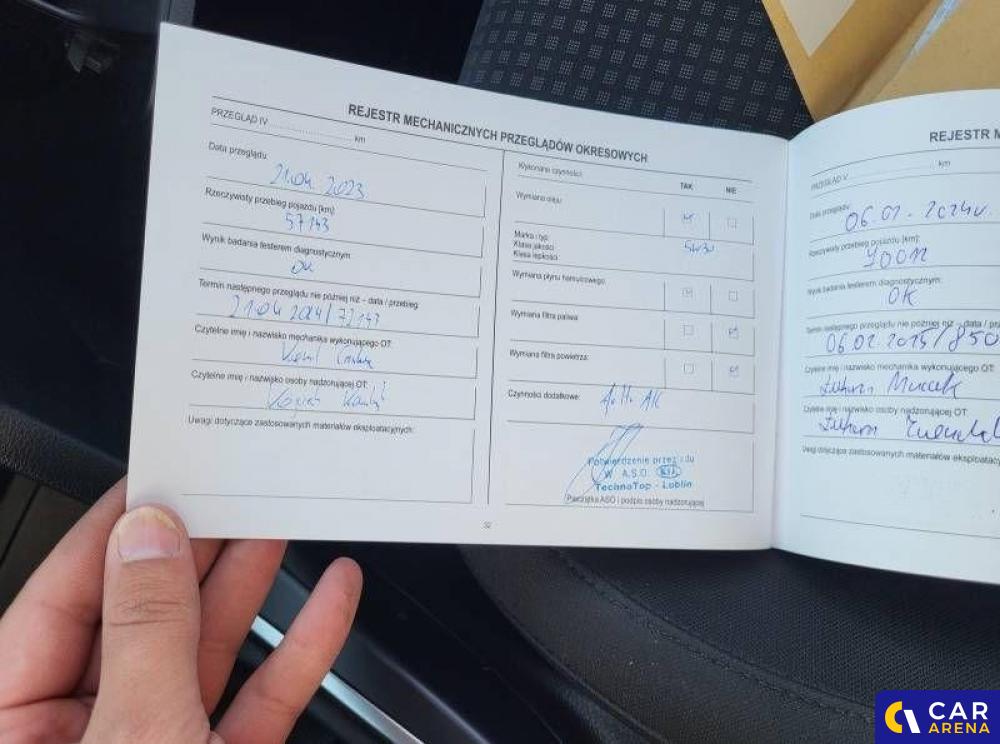 REJESTR MECHANICZNYCH PRZEGLĄDÓW OKRESOWYCH
PRZEGLĄD IV ........................... km
Data przeglądu:
21.04. 2023
Rzeczywisty przebieg pojazdu [km]:
57143
Wynik badania testerem diagnostycznym:
OK
Termin następnego przeglądu nie później niż – data / przebieg:
21.04 2024 / 72143
Czytelne imię i nazwisko mechanika wykonującego OT:
Czytelne imię i nazwisko osoby nadzorującej OT:
Uwagi dotyczące zastosowanych materiałów eksploatacyjnych:
Wykonane czynności: TAK NIE
Wymiana oleju:
Marka i typ:
Klasa jakości: 5W30
Klasa lepkości:
Wymiana płynu hamulcowego:
Wymiana filtra paliwa:
Wymiana filtra powietrza:
Czynności dodatkowe:
Potwierdzenie przeglądu
W A.S.O. KIA
TechnoTop - Lublin
Pieczątka ASO i podpis osoby nadzorującej
52
REJESTR M
PRZEGLĄD V ........ km
Data przeglądu:
06.02.2024r.
Rzeczywisty przebieg pojazdu [km]:
Wynik badania testerem diagnostycznym:
OK
Termin następnego przeglądu nie później niż – data / pr
06.02.2025/850
Czytelne imię i nazwisko mechanika wykonującego OT:
Czytelne imię i nazwisko osoby nadzorującej OT:
Uwagi dotyczące zastosowanych materiałów eksploatacyj
CAR
ARENA